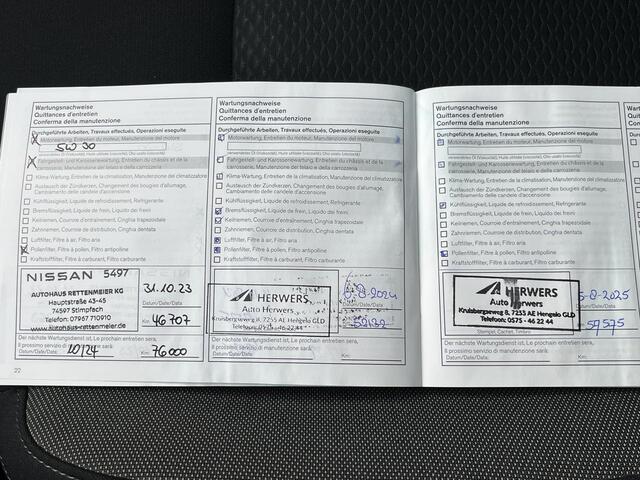 Wartungsnachweise
Quittances d'entretien
Conferma della manutenzione
Durchgeführte Arbeiten, Travaux effectués, Operazioni eseguite
Motorwartung, Entretien du moteur, Manutenzione del motore
5W30
Fahrgestell- und Karosseriewartung, Entretien du châssis et de la
carrosserie, Manutenzione del telaio e della carrozzeria
Klima-Wartung, Entretien de la climatisation, Manutenzione del climatizzatore
Austausch der Zündkerzen, Changement des bougies d'allumage,
Cambiamento delle candele d'accensione
Kühlflüssigkeit, Liquide de refroidissement, Refrigerante
Bremsflüssigkeit, Liquide de frein, Liquido dei freni
Keilriemen, Courroie d'entraînement, Cinghia trapezoidale
Zahnriemen, Courroie de distribution, Cinghia dentata
Luftfilter, Filtre à air, Filtro aria
Pollenfilter, Filtre à pollen, Filtro antipolline
Kraftstofffilter, Filtre à carburant, Filtro carburante
NISSAN 5497
AUTOHAUS RETTENMEIER KG
Hauptstraße 43-45
74597 Stimpfach
Telefon: 07967 710910
www.autohaus-rettenmeier.de
31.10.23
Datum/Date/Data:
46707
Km:
Der nächste Wartungsdienst ist, Le prochain entretien sera,
Il prossimo servizio di manutenzione sarà:
10/24
76000
Datum/Date/Data:
Km:
22
Wartungsnachweise
Quittances d'entretien
Conferma della manutenzione
Durchgeführte Arbeiten, Travaux effectués, Operazioni eseguite
Motorwartung, Entretien du moteur, Manutenzione del motore
Fahrgestell- und Karosseriewartung, Entretien du châssis et de la
carrosserie, Manutenzione del telaio e della carrozzeria
Klima-Wartung, Entretien de la climatisation, Manutenzione del climatizzatore
Austausch der Zündkerzen, Changement des bougies d'allumage,
Cambiamento delle candele d'accensione
Kühlflüssigkeit, Liquide de refroidissement, Refrigerante
Bremsflüssigkeit, Liquide de frein, Liquido dei freni
Keilriemen, Courroie d'entraînement, Cinghia trapezoidale
Zahnriemen, Courroie de distribution, Cinghia dentata
Luftfilter, Filtre à air, Filtro aria
Pollenfilter, Filtre à pollen, Filtro antipolline
Kraftstofffilter, Filtre à carburant, Filtro carburante
HERWERS
Auto Herwers
Kruisbergseweg 8, 7255 AE Hengelo GLD
Telefoon: 0575 - 46 22 44
-8-2024
Datum/Date/Data:
Km:
Der nächste Wartungsdienst ist, Le prochain entretien sera,
Il prossimo servizio di manutenzione sarà:
Datum/Date/Data:
Km:
Wartungsnachweise
Quittances d'entretien
Conferma della manutenzione
Durchgeführte Arbeiten, Travaux effectués, Operazioni eseguite
Motorwartung, Entretien du moteur, Manutenzione del motore
Fahrgestell- und Karosseriewartung, Entretien du châssis et de la
carrosserie, Manutenzione del telaio e della carrozzeria
Klima-Wartung, Entretien de la climatisation, Manutenzione del climatizzatore
Austausch der Zündkerzen, Changement des bougies d'allumage,
Cambiamento delle candele d'accensione
Kühlflüssigkeit, Liquide de refroidissement, Refrigerante
Bremsflüssigkeit, Liquide de frein, Liquido dei freni
Keilriemen, Courroie d'entraînement, Cinghia trapezoidale
Zahnriemen, Courroie de distribution, Cinghia dentata
Luftfilter, Filtre à air, Filtro aria
Pollenfilter, Filtre à pollen, Filtro antipolline
Kraftstofffilter, Filtre à carburant, Filtro carburante
HERWERS
Auto Herwers
Kruisbergseweg 8, 7255 AE Hengelo GLD
Telefoon: 0575 - 46 22 44
Stempel, Cachet, Timbro
5-8-2025
Datum/Date/Data:
57575
Km:
Der nächste Wartungsdienst ist, Le prochain entretien sera,
Il prossimo servizio di manutenzione sarà:
Datum/Date/Data:
Km: